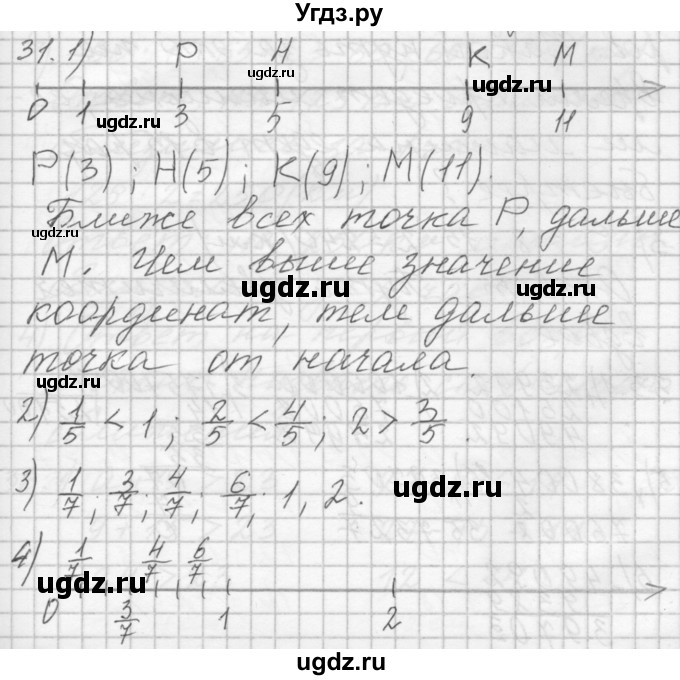 Угдз.ру
31. 1) P H K M
ugdz.ru
ugdz.ru
0 1 3 5 9 11
ugdz.ru ugdz.ru
P(3); H(5); K(9); M(11).
Ближе всех точка P, дальше
ugdz.ru
M. Чем выше значение
ugdz.ru ugdz.ru
координат, тем дальше
точка от начала.
ugdz.ru
2) 1/5 < 1; 2/5 < 4/5; 2 > 3/5.
ugdz.ru ugdz.ru
3) 1/7; 3/7; 4/7; 6/7; 1, 2.
ugdz.ru
4) 1/7 4/7 6/7
ugdz.ru ugdz.ru
0 3/7 1 2
ugdz.ru
ugdz.ru